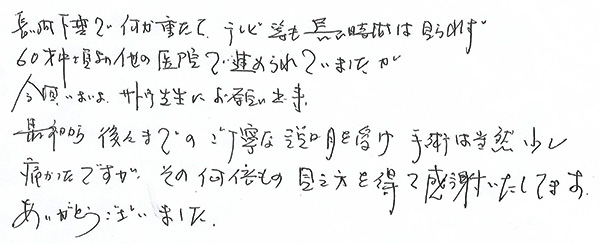 長い間下垂で何か重たく、テレビ等も長い時間は見られず
60才中頃より他の医院で進められていましたが
今回いよいよサトウ先生にお会い出来、
最初から後々までのご丁寧な説明を受け 手術は当然少し
痛かったですが、その何倍もの見え方を得て感謝いたしてます。
ありがとうございました。